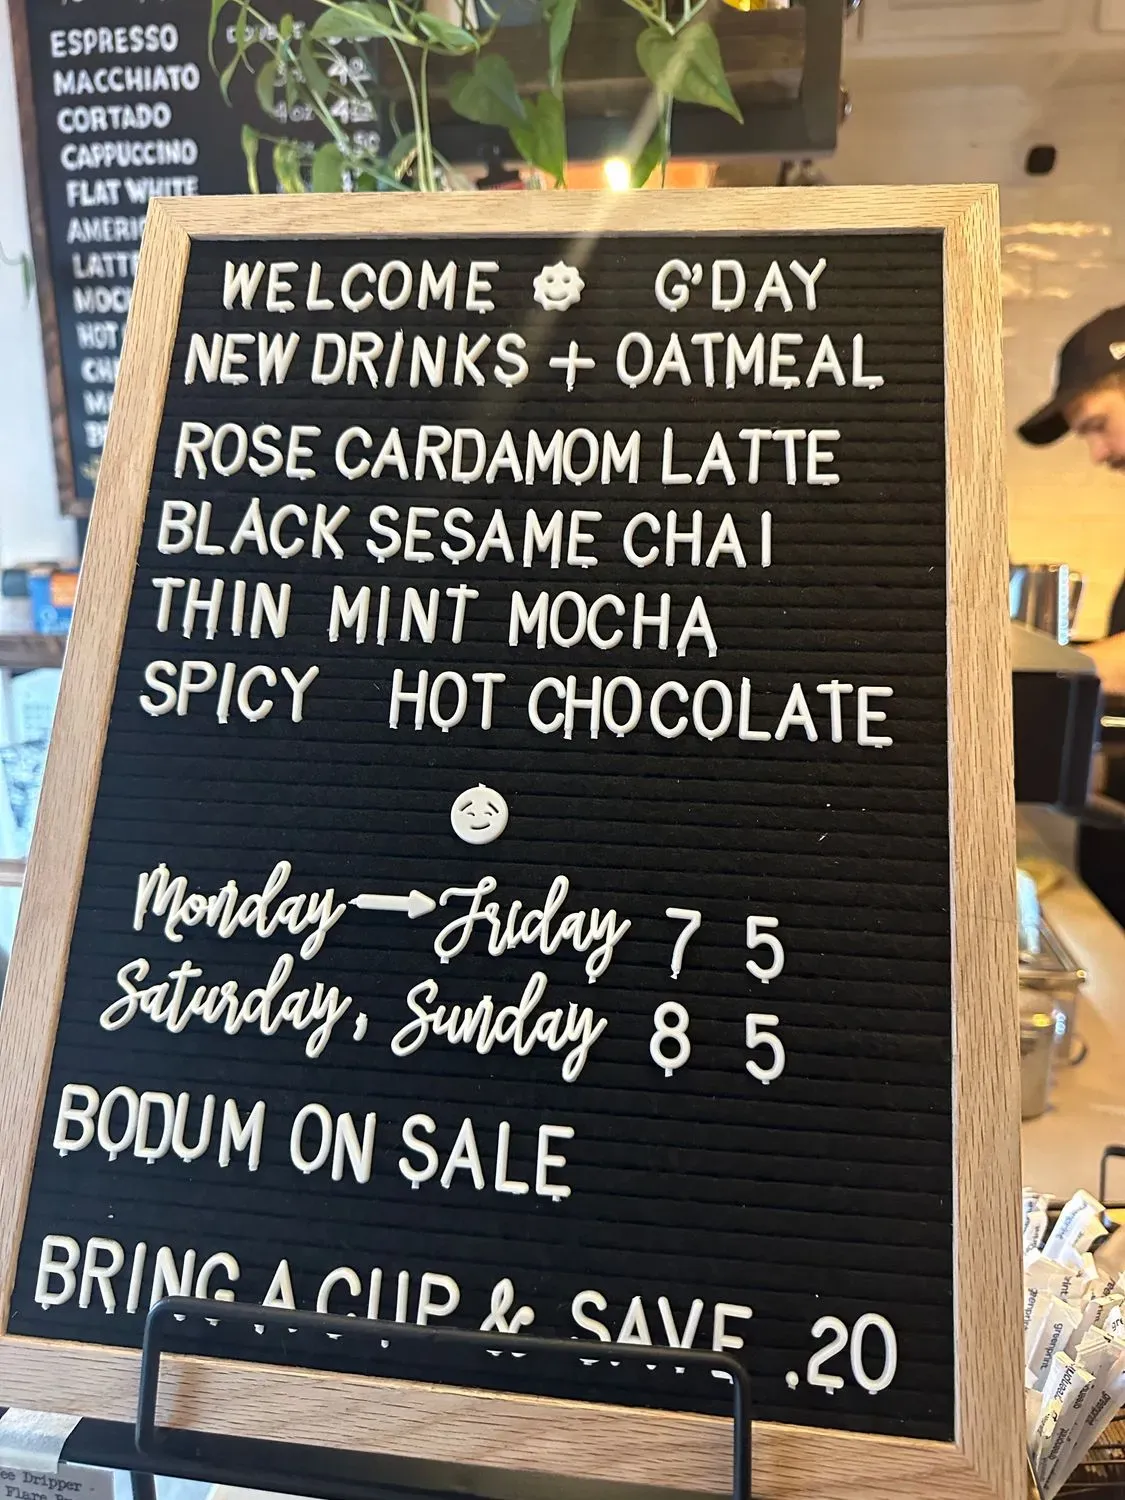 ESPRESSO
MACCHIATO
CORTADO
CAPPUCCINO
FLAT WHITE
WELCOME G'DAY
NEW DRINKS + OATMEAL
ROSE CARDAMOM LATTE
BLACK SESAME CHAI
THIN MINT MOCHA
SPICY HOT CHOCOLATE
Monday → Friday 7 5
Saturday, Sunday 8 5
BODUM ON SALE
BRING A CUP & SAVE .20
greenprint
Dripper
Flare